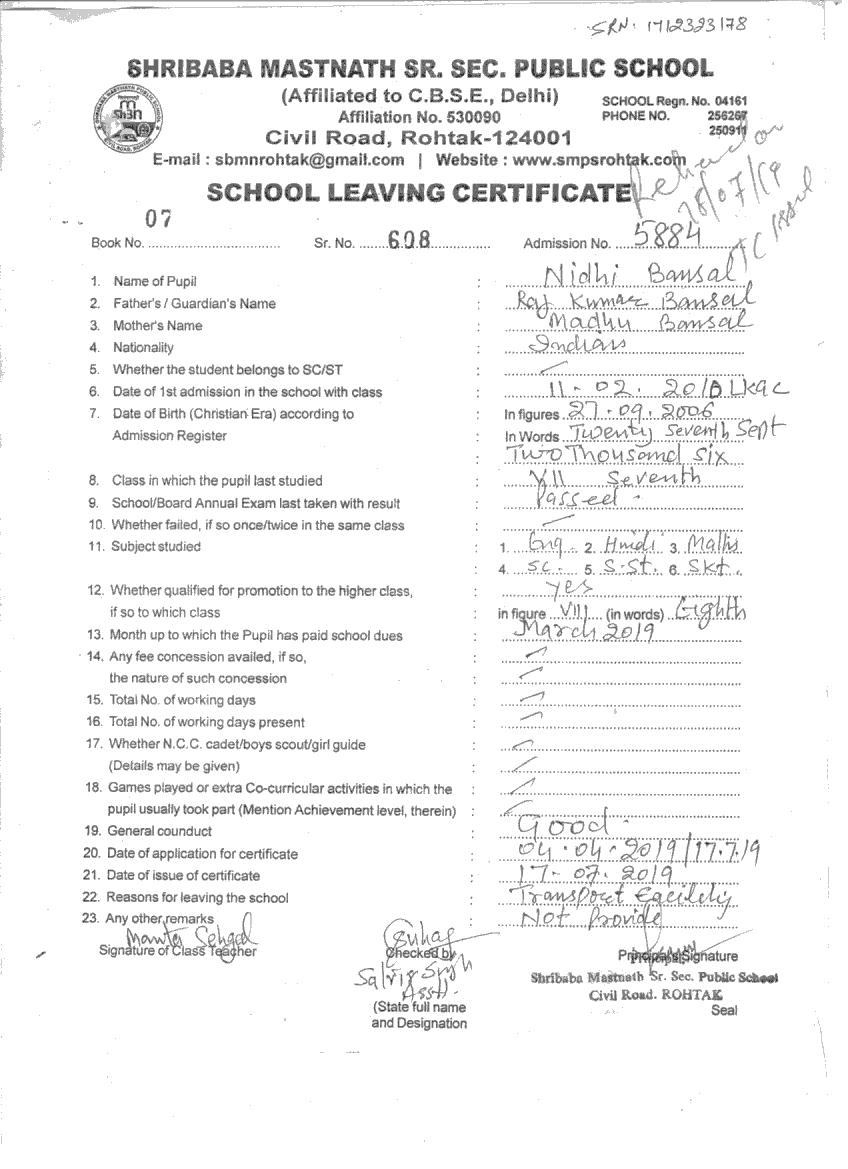 SRN: 1712323178
SHRIBABA MASTNATH SR. SEC. PUBLIC SCHOOL
(Affiliated to C.B.S.E., Delhi)
SCHOOL Regn. No. 04161
Affiliation No. 530090
PHONE NO. 256267
250911
Civil Road, Rohtak-124001
E-mail : sbmnrohtak@gmail.com | Website : www.smpsrohtak.com
SCHOOL LEAVING CERTIFICATE
28/07/19
TC issued
Book No. 07 Sr. No. 608 Admission No. 5884
1. Name of Pupil : Nidhi Bansal
2. Father's / Guardian's Name : Raj Kumar Bansal
3. Mother's Name : Madhu Bansal
4. Nationality : Indian
5. Whether the student belongs to SC/ST :
6. Date of 1st admission in the school with class : 11-02.2010
7. Date of Birth (Christian Era) according to In figures 27.09.2006
Admission Register : In Words Twenty Seventh Sept
: Two Thousand Six
8. Class in which the pupil last studied : VII Seventh
9. School/Board Annual Exam last taken with result : Passed.
10. Whether failed, if so once/twice in the same class :
11. Subject studied : 1. Eng 2. Hindi 3. Maths
4. SC. 5. S.St. 6. Skt.
12. Whether qualified for promotion to the higher class, : yes
if so to which class in figure VIII (in words) Eighth
13. Month up to which the Pupil has paid school dues : March 2019
14. Any fee concession availed, if so, :
the nature of such concession :
15. Total No. of working days :
16. Total No. of working days present :
17. Whether N.C.C. cadet/boys scout/girl guide :
(Details may be given) :
18. Games played or extra Co-curricular activities in which the :
pupil usually took part (Mention Achievement level, therein) :
19. General counduct : Good.
20. Date of application for certificate : 04.04.2019/17.7.19
21. Date of issue of certificate : 17-07.2019
22. Reasons for leaving the school : Transport Facility
23. Any other remarks : Not Provide
Mamta Sehgal
Signature of Class Teacher Checked by Principal's Signature
Asstt.
Shribaba Mastnath Sr. Sec. Public School
(State full name Civil Road. ROHTAK
and Designation Seal